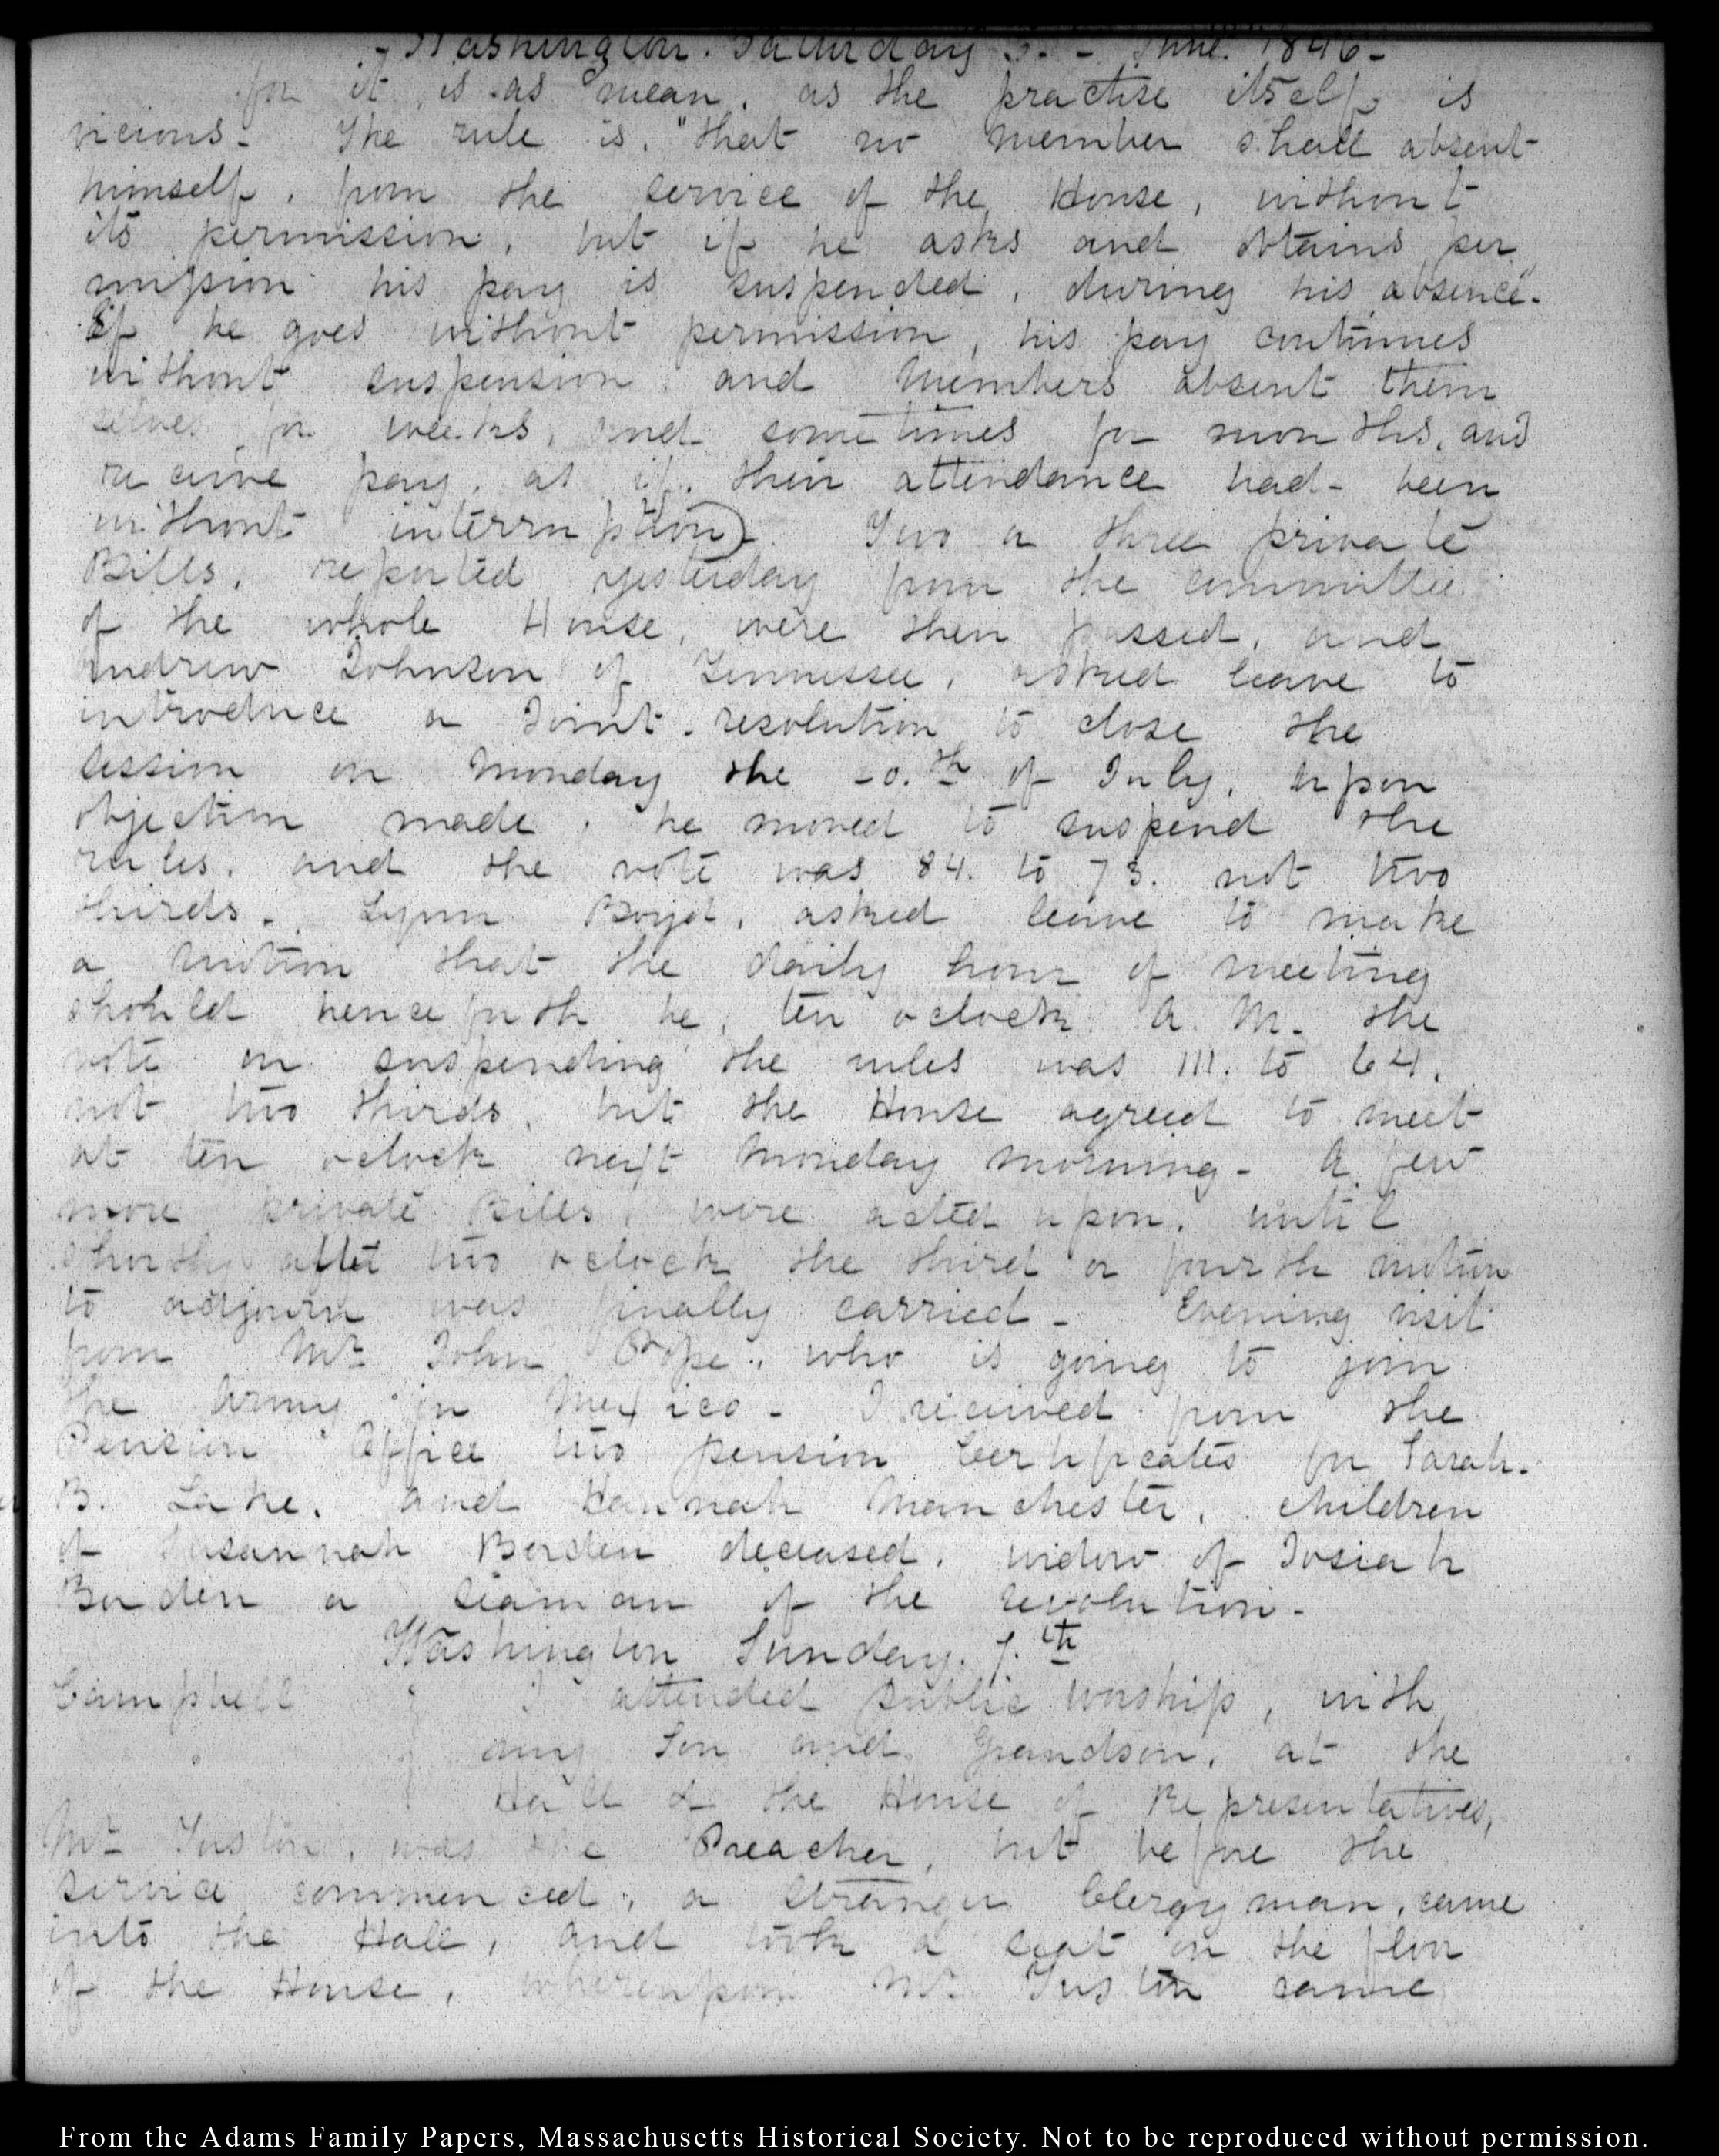 Washington. Saturday June. 1846-
for it is as mean, as the practise itself is
vicious- The rule is, "that no member shall absent
himself, from the service of the House, without
its permission, but if he asks and obtains per
mission his pay is suspended, during his absence"-
If he goes without permission, his pay continues
without suspension and Members absent them
selves for weeks, and sometimes for months, and
receive pay, as if their attendance had- been
without interruption). Two or three private
Bills, reported yesterday from the committee
of the whole House, were then passed, and
Andrew Johnson of Tennessee, asked leave to
introduce a Joint resolution to close the
session on Monday the -0.th of July, upon
objection made, he moved to suspend the
rules, and the vote was 84. to 73. not two
thirds. Lynn Boyd, asked leave to make
a motion that the daily hour of meeting
should henceforth be, ten oclock A. M. the
vote on suspending the rules was 111. to 64.
not two thirds, but the House agreed to meet
at ten oclock next Monday morning- A few
more private Bills, were acted upon, until
shortly after two oclock the third or fourth motion
to adjourn was finally carried- Evening visit
from Mr. John Pope., who is going to join
the Army in Mexico- I received from the
Pension Office two pension Certificates for Sarah-
B. Lake, and Hannah Manchester, children
of Susannah Borden deceased, widow of Josiah
Borden a seaman of the revolution-
Washington Sunday. 7.th
Campbell I attended public worship, with
my Son and Grandson, at the
Hall of the House of Representatives,
Mr Tustin, was the Preacher, but before the
service commenced, a stranger Clergyman, came
into the Hall, and took a seat on the floor
of the House, whereupon Mr. Tustin came
From the Adams Family Papers, Massachusetts Historical Society. Not to be reproduced without permission.